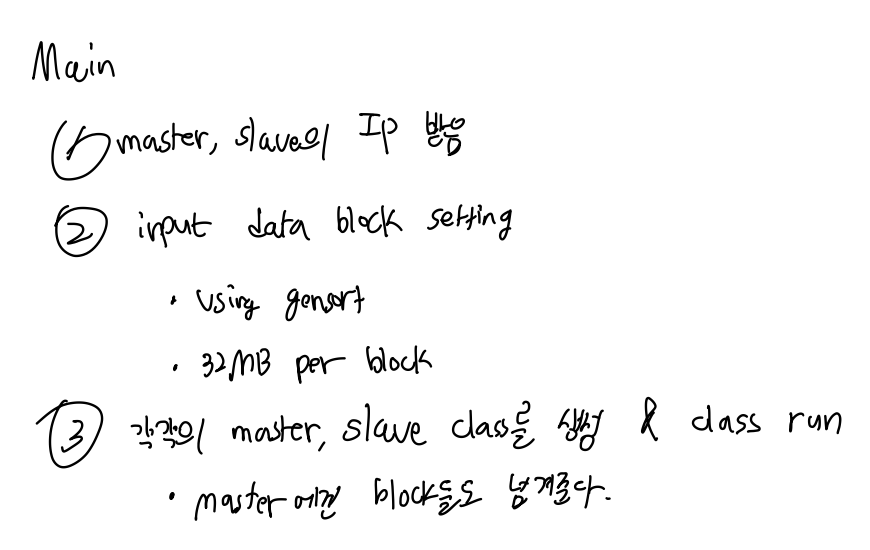 Main
① master, slave의 IP 받음
② input data block setting
• using gensort
• 32MB per block
③ 각각의 master, slave class를 생성 & class run
• master에겐 block들도 넘겨준다.